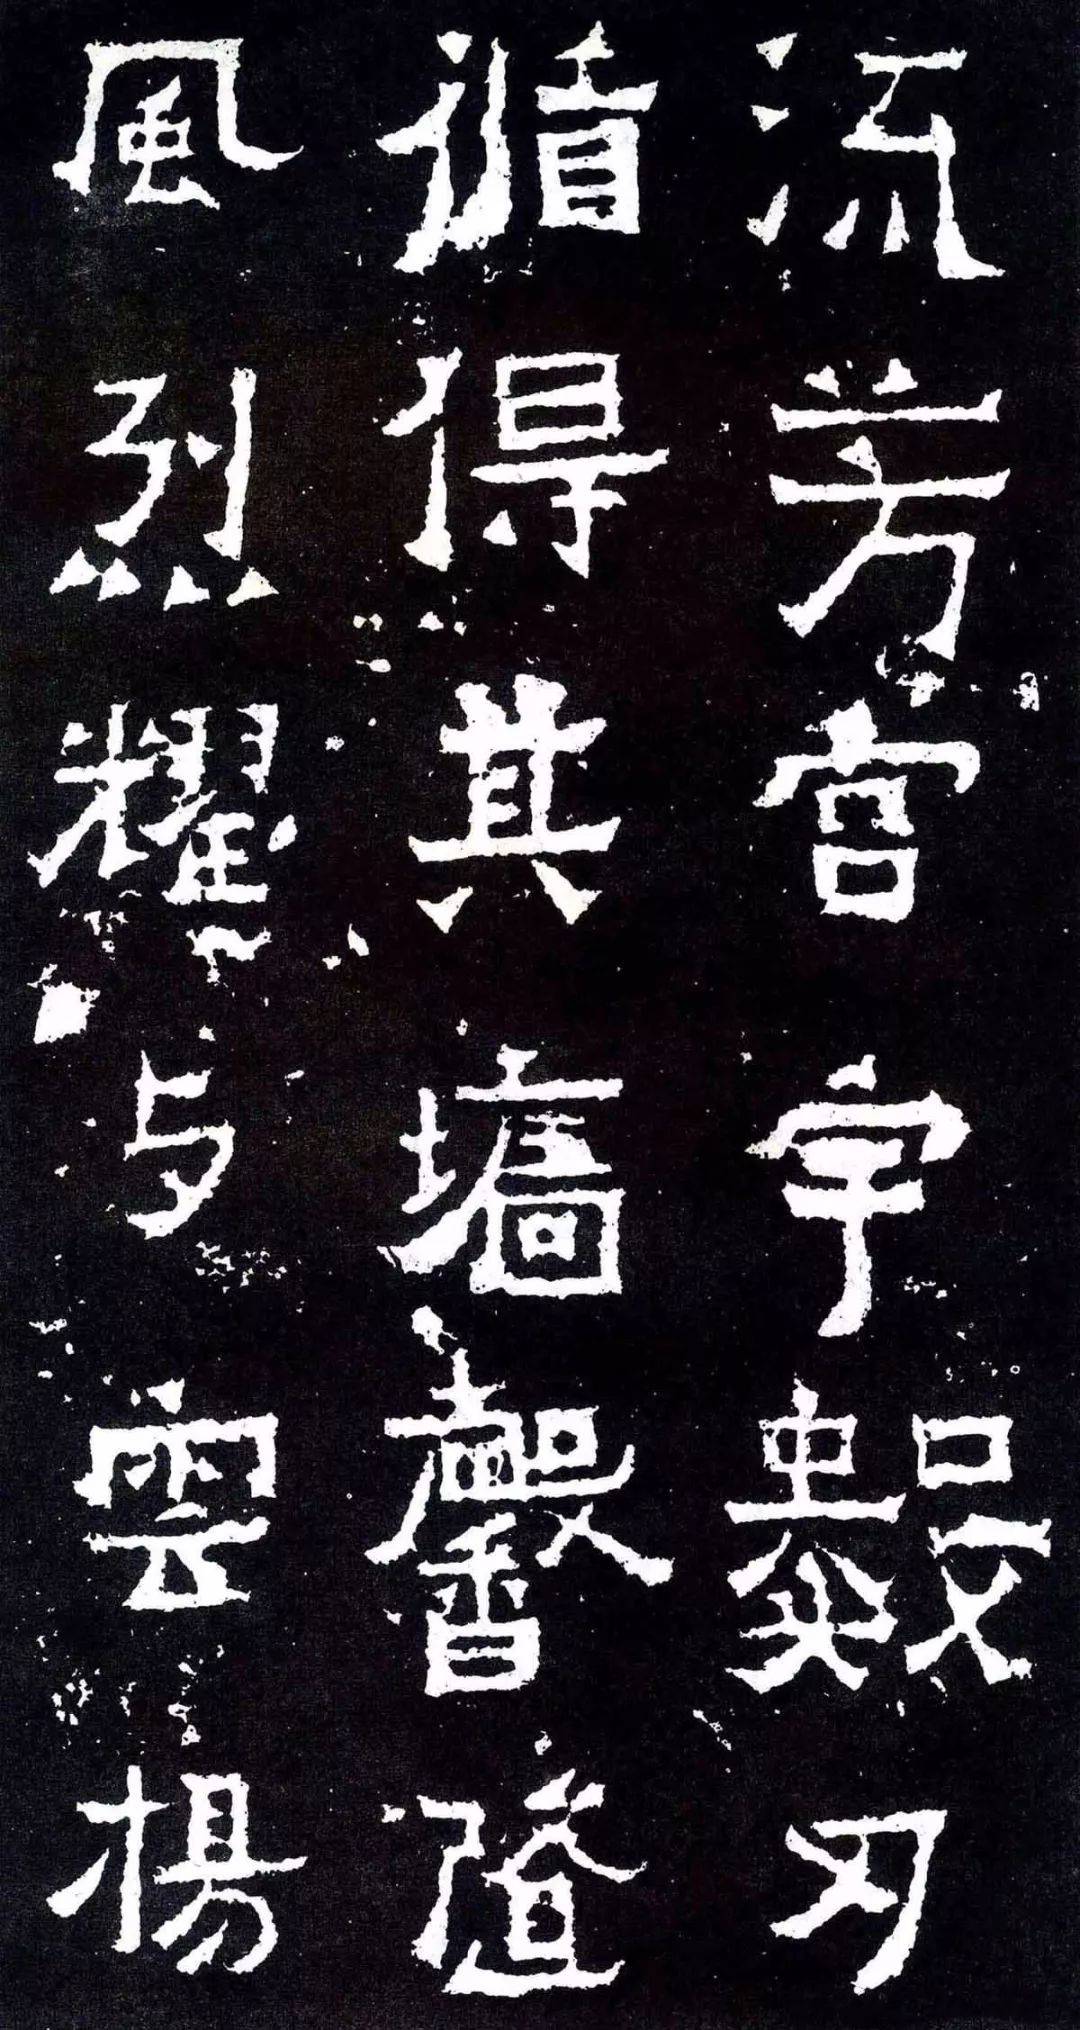 流芳宮宇數刃
循得其墻馨隨
風烈耀与雲揚